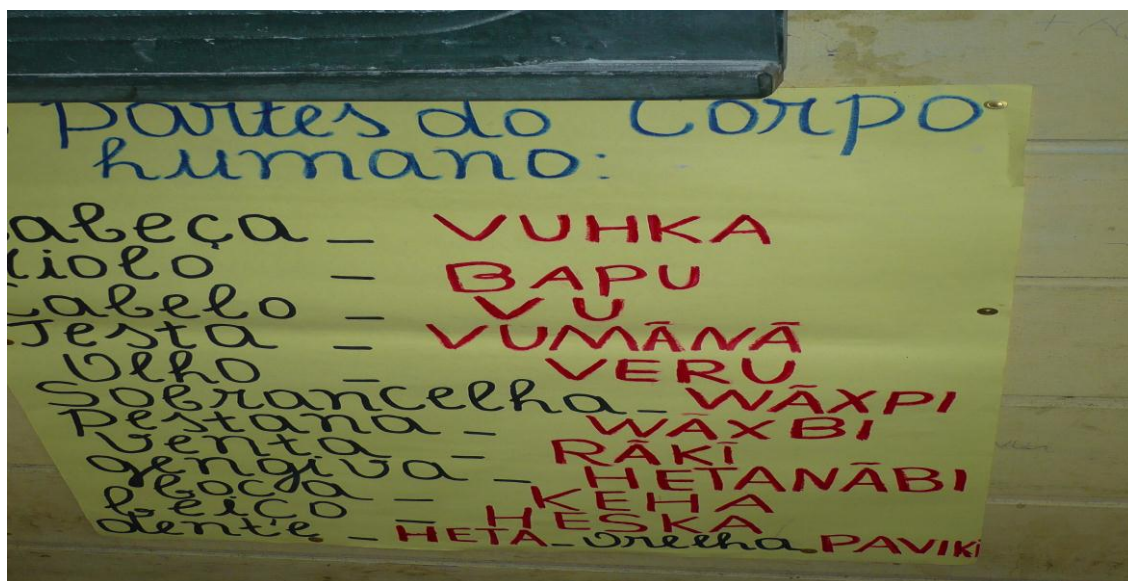 Partes do Corpo
humano:
abeça - VUHKA
iolo - BAPU
Cabelo - VU
Testa - VUMĀNĀ
Olho - VERU
Sobrancelha - WĀXPI
Pestana - WĀXBI
Venta - RĀKĪ
gengiva - HETANĀBI
boca - KEHA
beiço - HESKA
dente - HETA - Orelha PAVIKI